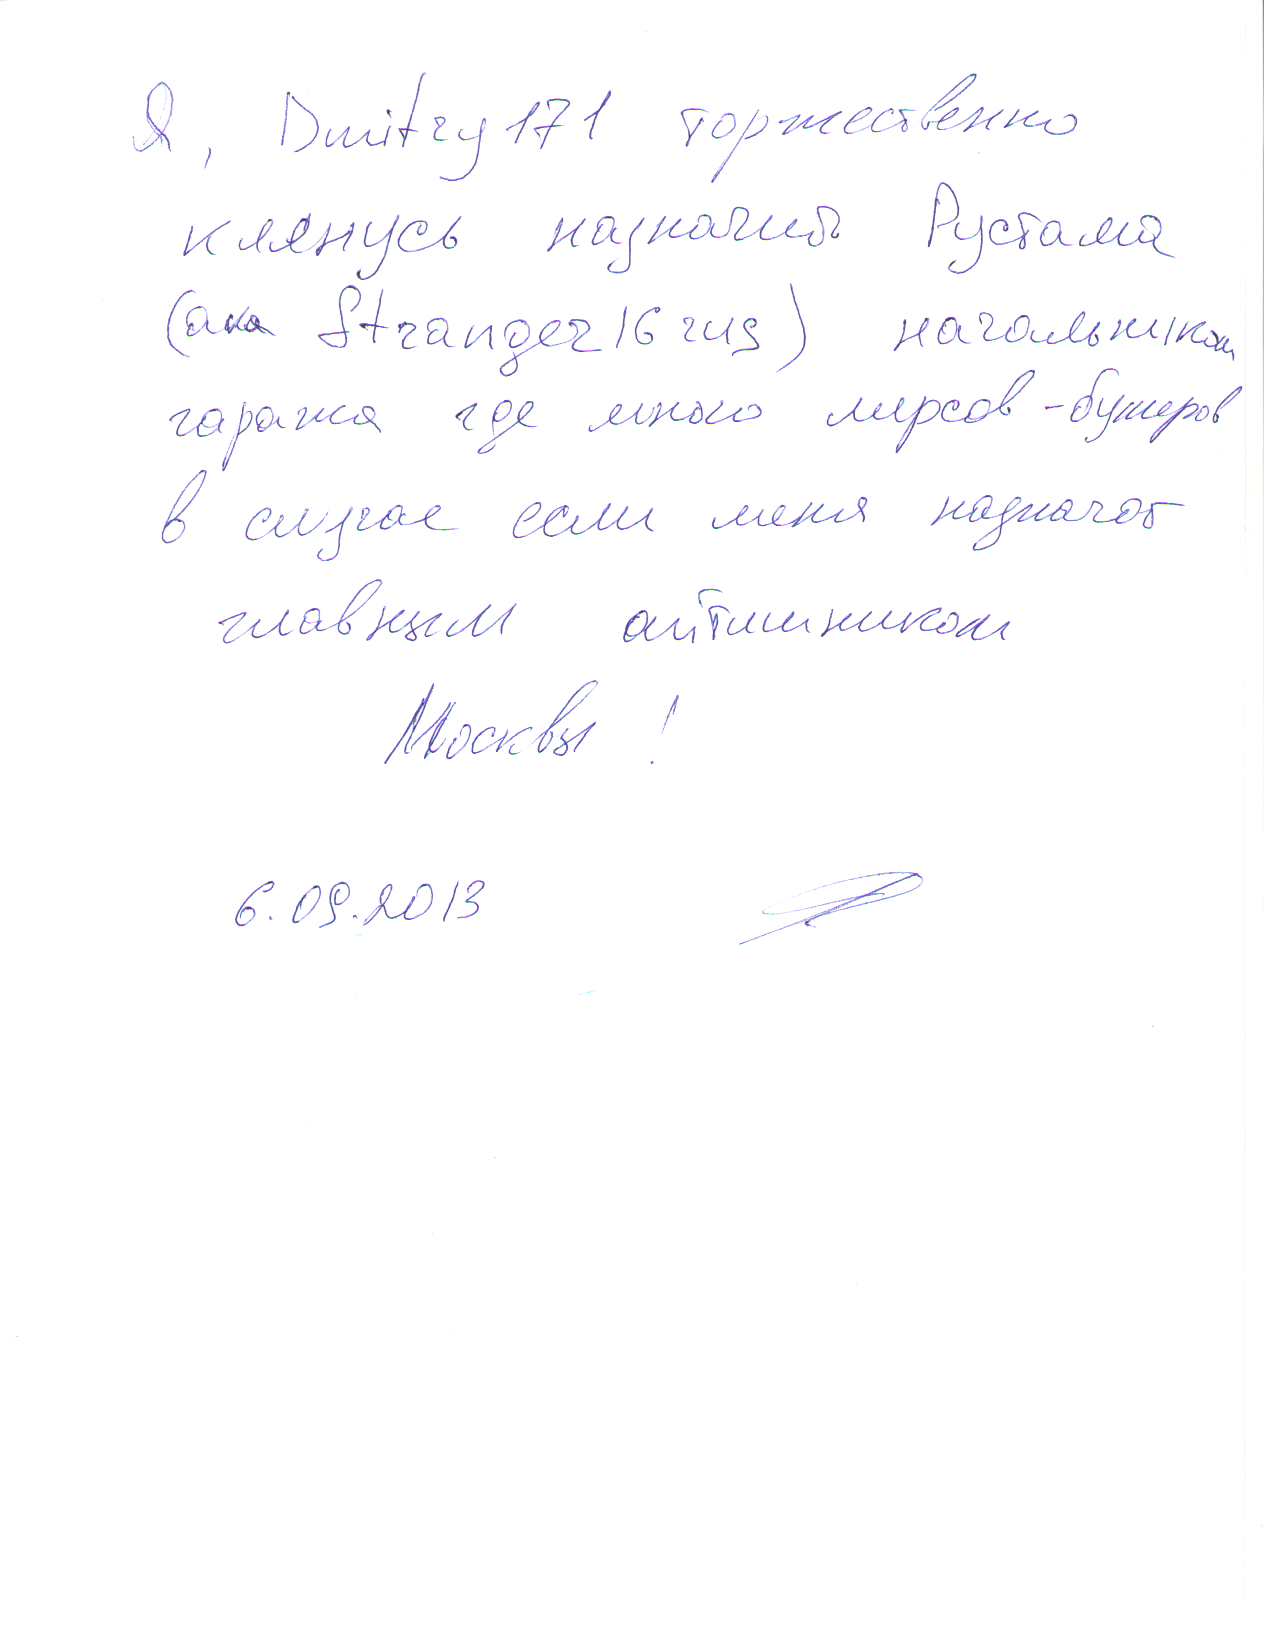 Я, Dmitry171 торжественно
клянусь назначить Рустама
(ака Stranger16rus) начальником
гаража где много мерсов-бумеров
в случае если меня назначат
главным айтишником
Москвы!
6.09.2013